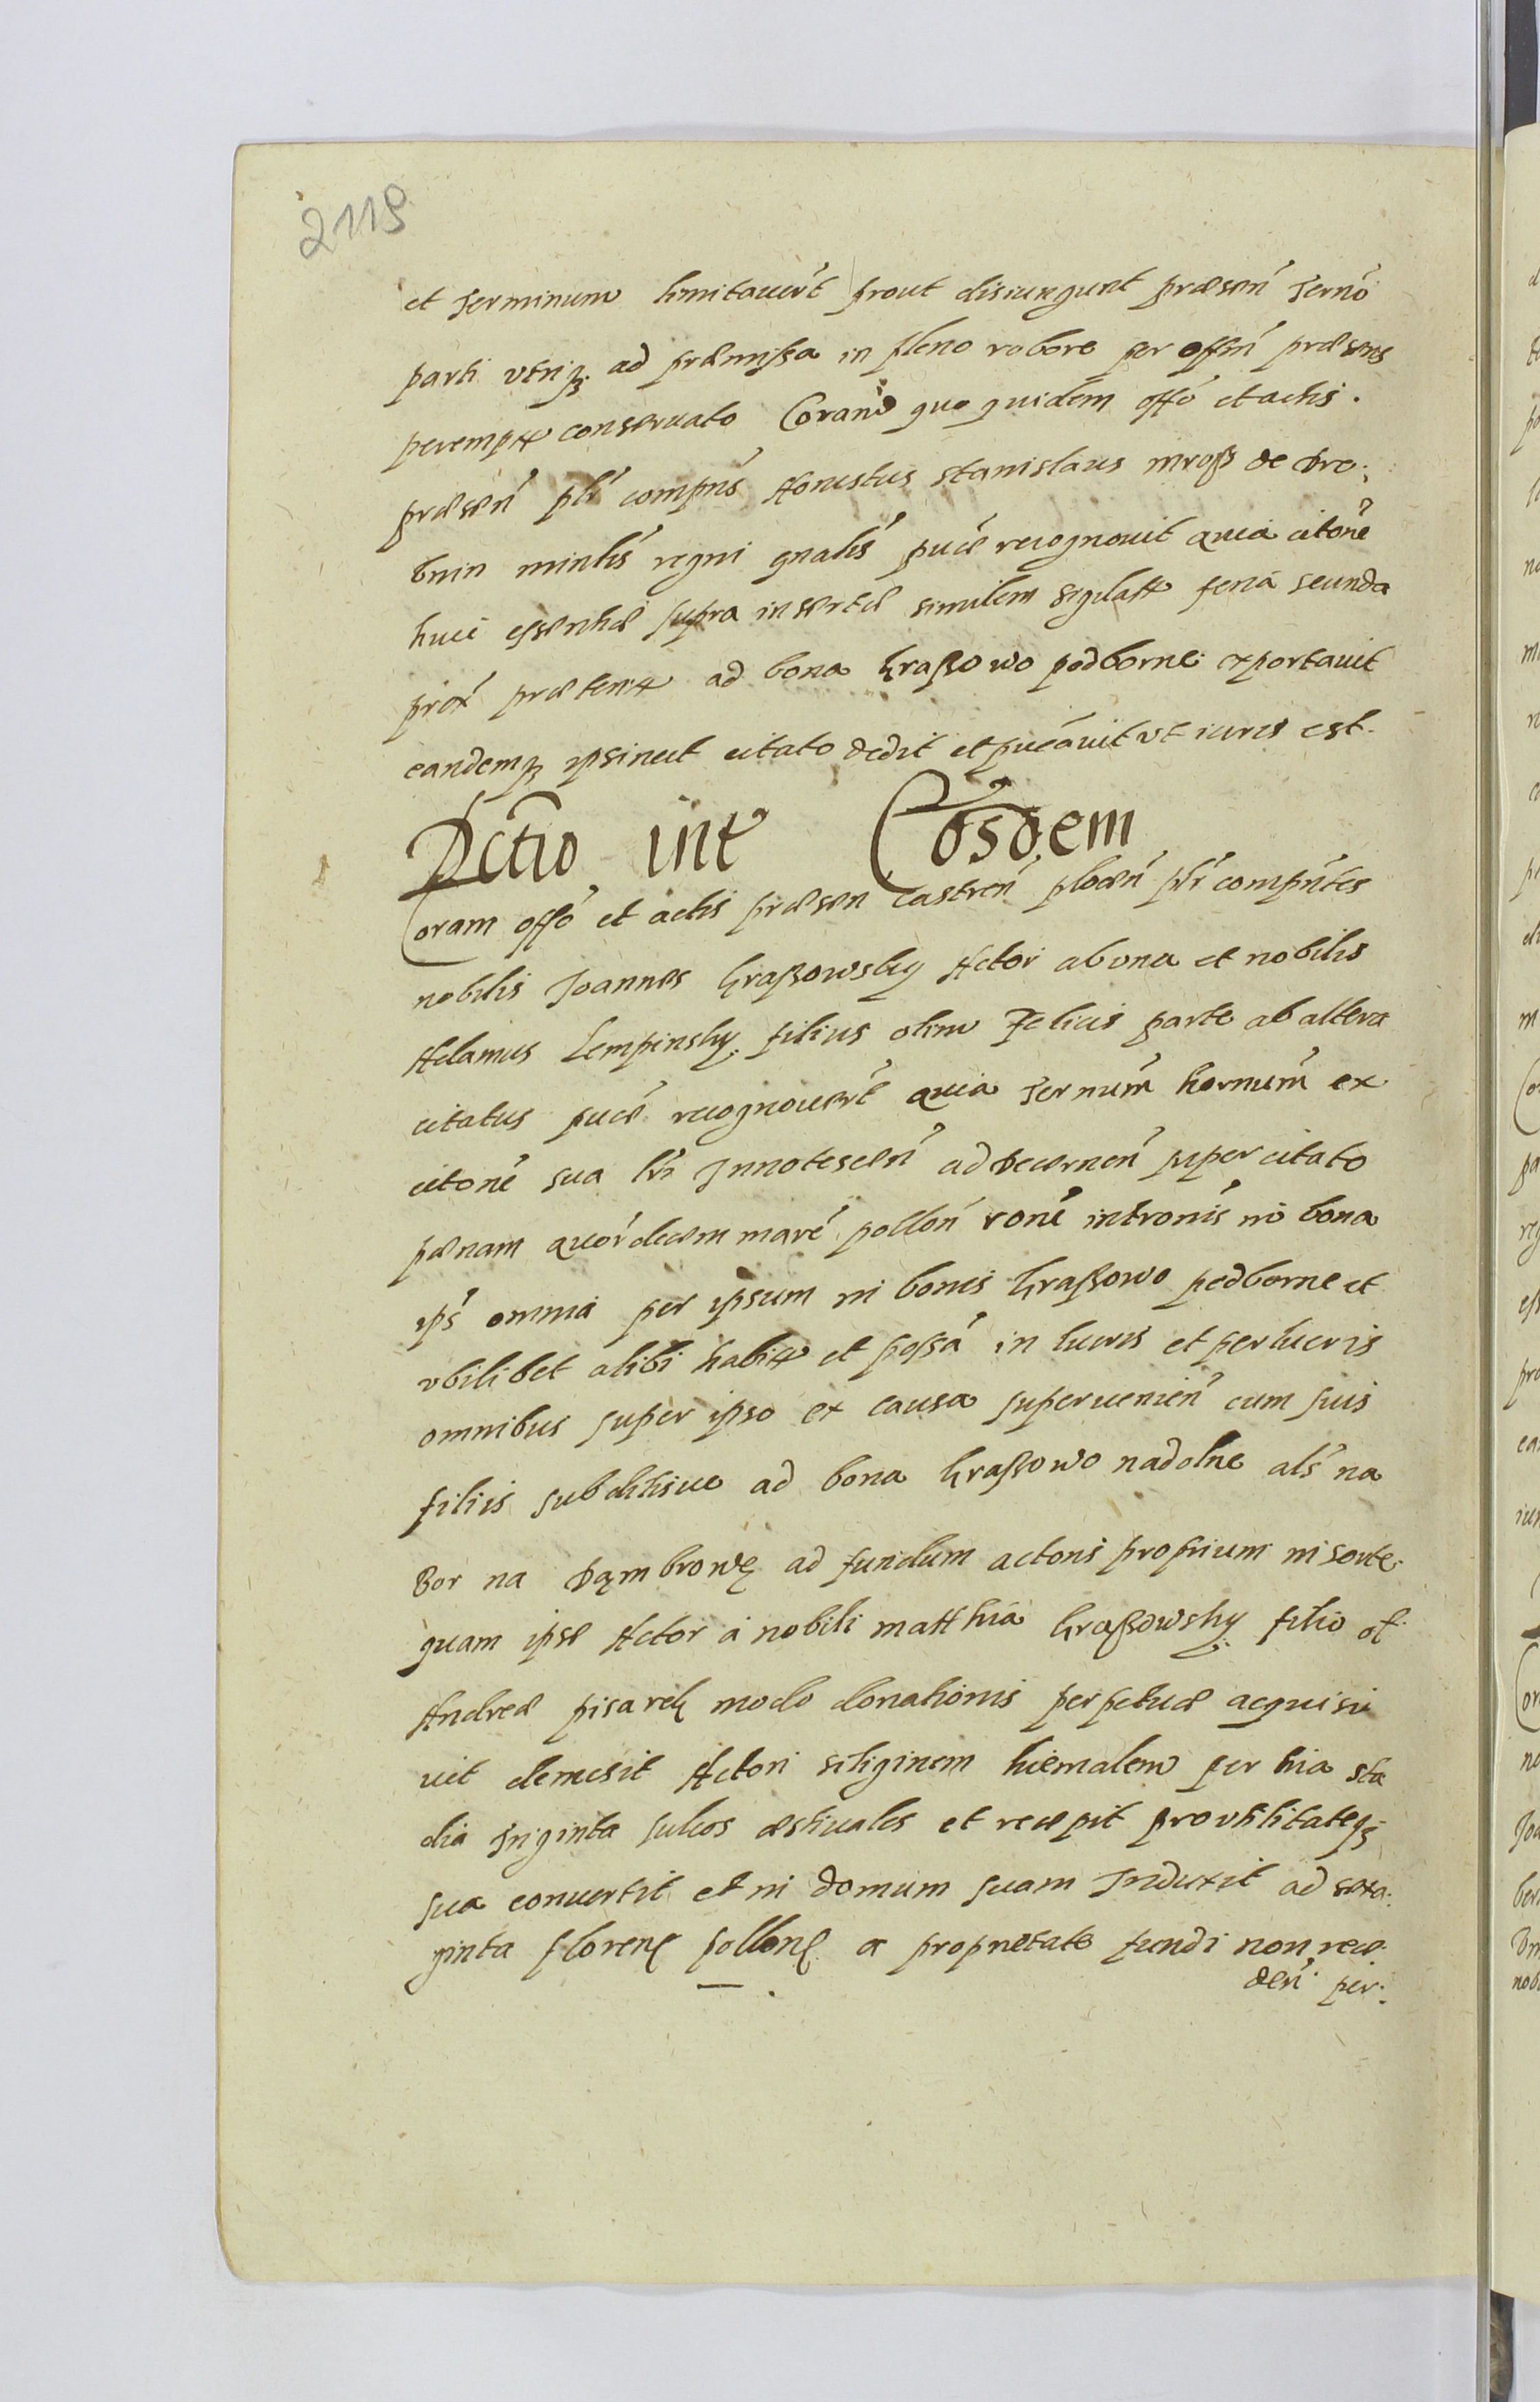 2119
et Terminum limitauer̃t prout disiungunt præsen̄ Termõ
parti vtriqȝ ad præmissa in pleno robore per offm̄ præsens
perempt conseruato Coram quo quidem offõ et actis.
præsen̄ pl̄r comprn̄s Honestus Stanislaus mroß de Dro:
bnin mintl̄is regni gnal̄is puc̄e recognouit quia citõne
huic essentiæ supra insertæ similem sigilatt feria secunda
prox̄ præterit ad bona kraßowo podborne exportauit
eandemqȝ ipsimet citato dedit et puc̄auit vt iuris est.
Actio inter Eosdem
Coram offõ et actis præsen castren̄ plocen̄ pl̄r comprn̄tes
nobilis Joannes kraßowsky Actor ab vna et nobilis
Adamus Lempinsky filius olim Felicis parte ab altera
citatus puc̄e recognouer̃t quia Termin̄um hornum̄ ex
citõne sua lr̄i Innotescen̄ ad decernen̄ super citato
pænam quor̄decem marc̄ pollon̄ rõne intromis̄ in bona
ips̄ omnia per ipsum in bonis kraßowo podborne et
vbilibet alibi habit et possā in lucris et perlucris
omnibus super ipso ex causa superuenien̄ cum suis
filiis subditisue ad bona kraßowo nadolne als̄ na
Bor na Dąmbrowę ad fundum actoris proprium in sorte
quam ipse Actor a nobili matthia kraßowsky filio ol
Andreæ pisarek modo donationis perpetuæ acquisi
uit demesit Actori siliginem hiemalem per tria sta
dia triginta sulcos æstiuales et recæpit pro vtilitateqȝ
sua conuertit et in domum suam Induxit ad sexa:
ginta floren pollon a proprietate fundi non rece
den̄ per: